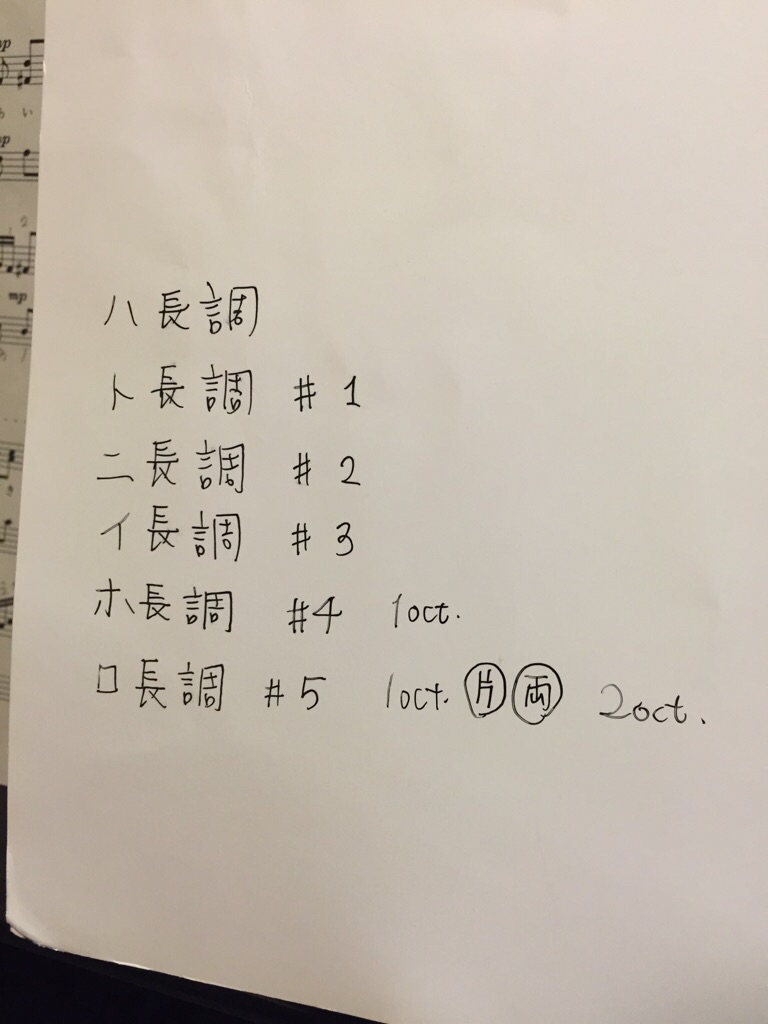 mp
mp
mp
ハ長調
ト長調 # 1
ニ長調 # 2
イ長調 # 3
ホ長調 #4 1oct.
ロ長調 #5 1oct. 片 両 2oct.